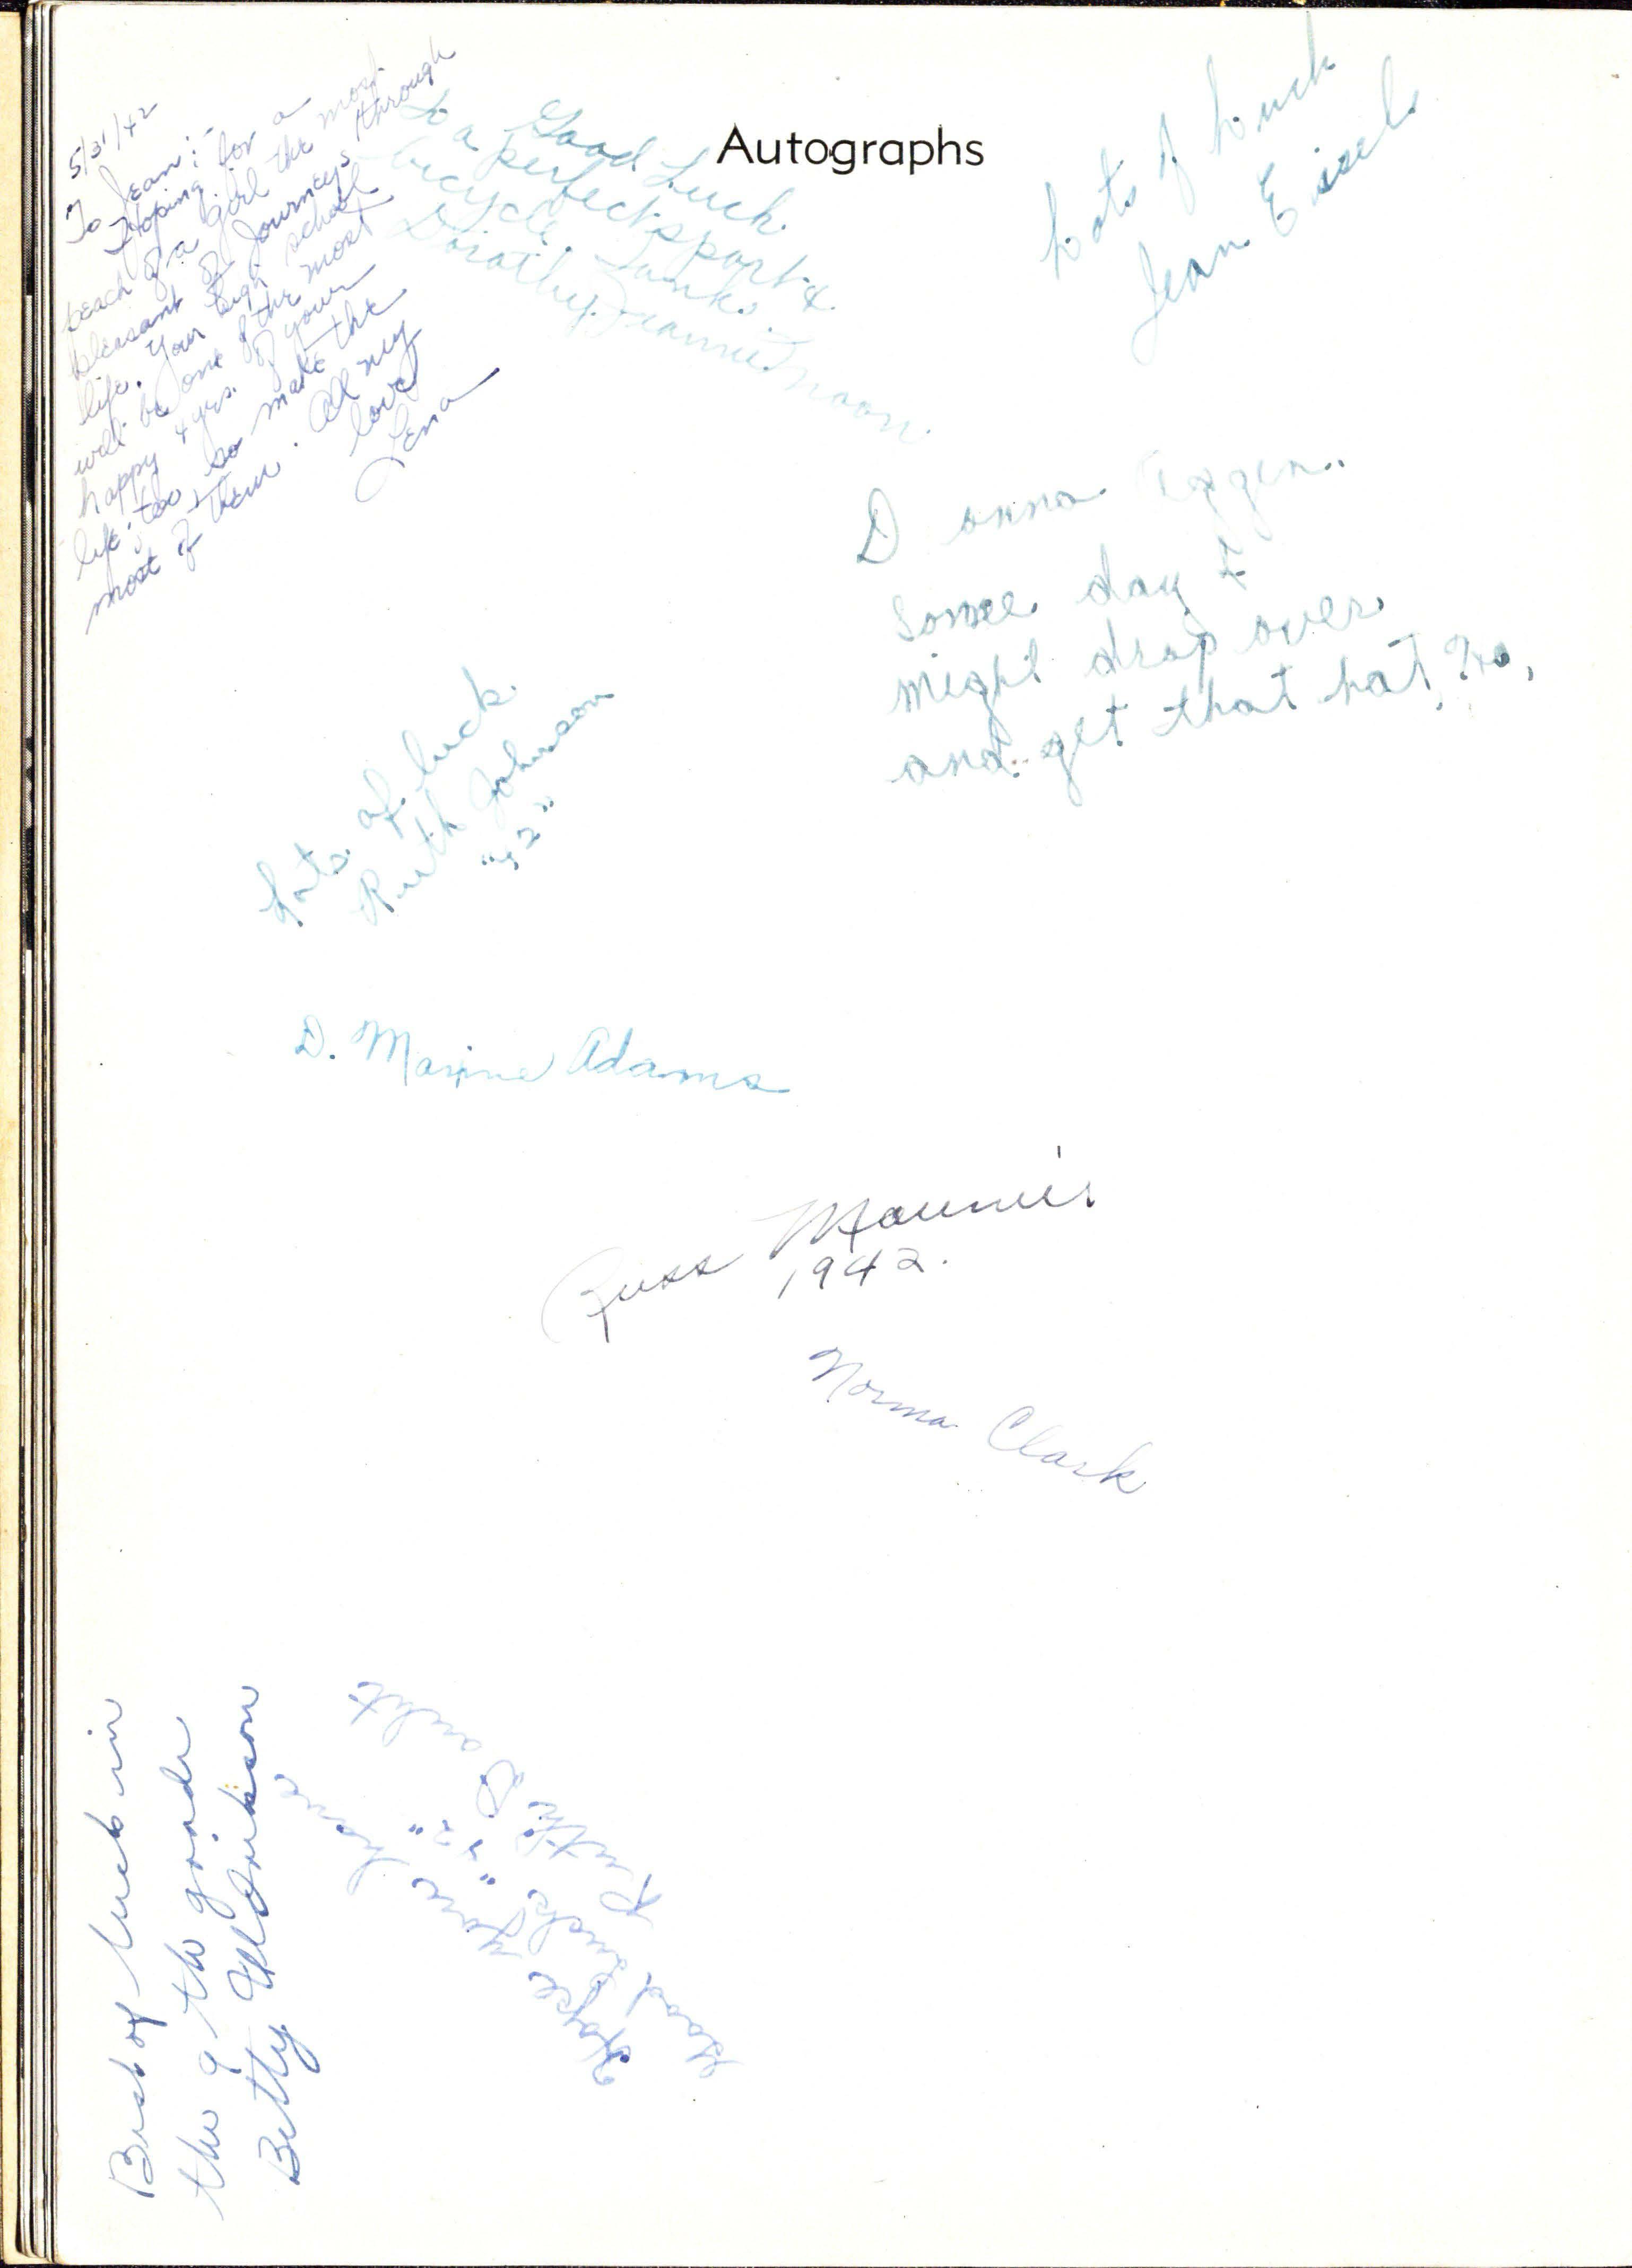 Autographs
5/31/42
To Jean:-
Hoping for a
peach of a girl the most
pleasant of journeys through
life. Your high school
will be one of the most
happy 4 yrs. of your
life, too, so make the
most of them. All my
love
Lena
Good Luck
to a perfect sport &
bicycle.
Dorothy
Lots of Luck
Jean Eisel
Donna
Some day I
might drop over
and get that hat,
Lots of luck
Ruth Johnson
"42"
D. Maxine Adams
Russ
1942.
Norma Clark
Best of luck in
the 9 the grade
Betty
Hope you have
Good Luck "42"
Ruth